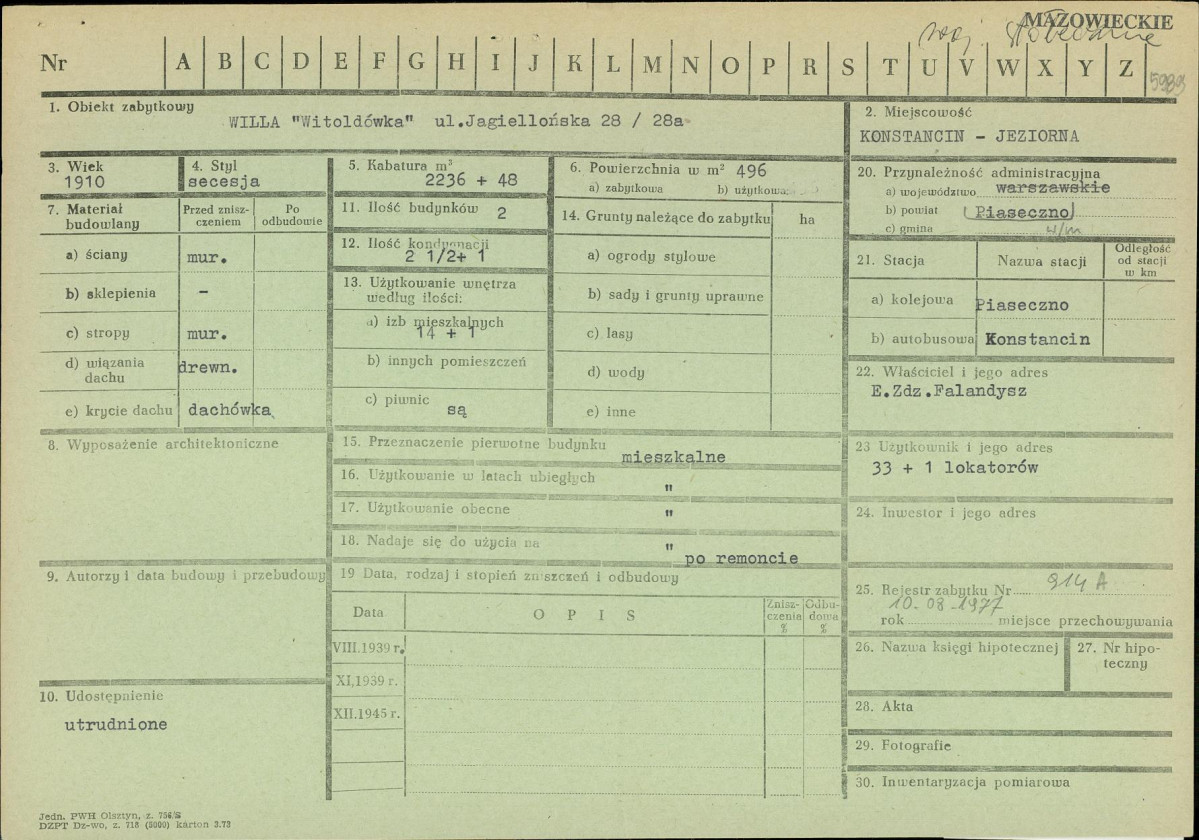 MAZOWIECKIE
woj. stołeczne
Nr A B C D E F G H I J K L M N O P R S T U V W X Y Z
5989
1. Obiekt zabytkowy
WILLA "Witoldówka" ul.Jagiellońska 28 / 28a
2. Miejscowość
KONSTANCIN - JEZIORNA
3. Wiek
1910
4. Styl
secesja
5. Kabatura m³
2236 + 48
6. Powierzchnia w m² 496
a) zabytkowa b) użytkowa
20. Przynależność administracyjna
a) województwo warszawskie
b) powiat (Piaseczno)
c) gmina w/m
7. Materiał budowlany
Przed zniszczeniem
Po odbudowie
a) ściany mur.
b) sklepienia -
c) stropy mur.
d) wiązania dachu drewn.
e) krycie dachu dachówka
11. Ilość budynków 2
12. Ilość kondygnacji
2 1/2+ 1
13. Użytkowanie wnętrza
według ilości:
a) izb mieszkalnych
14 + 1
b) innych pomieszczeń
c) piwnic
są
14. Grunty należące do zabytku ha
a) ogrody stylowe
b) sady i grunty uprawne
c) lasy
d) wody
e) inne
21. Stacja Nazwa stacji Odległość od stacji w km
a) kolejowa Piaseczno
b) autobusowa Konstancin
22. Właściciel i jego adres
E.Zdz.Falandysz
8. Wyposażenie architektoniczne
15. Przeznaczenie pierwotne budynku
mieszkalne
16. Użytkowanie w latach ubiegłych
"
17. Użytkowanie obecne "
18. Nadaje się do użycia na "
po remoncie
23 Użytkownik i jego adres
33 + 1 lokatorów
24. Inwestor i jego adres
9. Autorzy i data budowy i przebudowy
19 Data, rodzaj i stopień zniszczeń i odbudowy
Data OPIS Zniszczenia % Odbudowa %
VIII.1939 r.
XI,1939 r.
XII.1945 r.
25. Rejestr zabytku Nr 914 A
10-08-1977
rok miejsce przechowywania
26. Nazwa księgi hipotecznej
27. Nr hipoteczny
10. Udostępnienie
utrudnione
28. Akta
29. Fotografie
30. Inwentaryzacja pomiarowa
Jedn. PWH Olsztyn, z. 756/S
DZPT Dz-wo, z. 718 (5000) karton 3.73